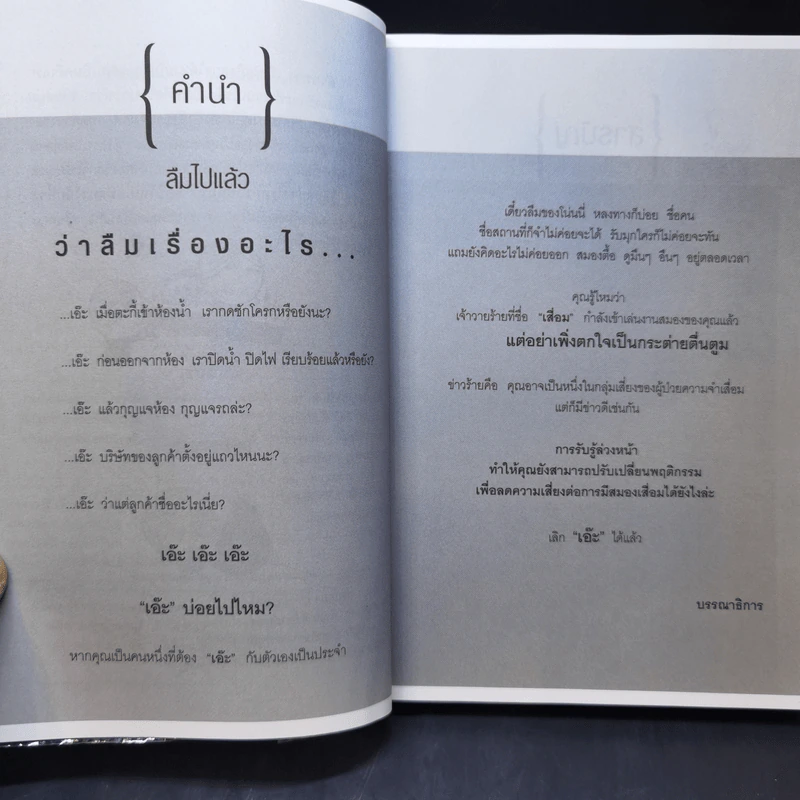 คำนำ
ลืมไปแล้ว
ว่าลืมเรื่องอะไร...
...เอ๊ะ เมื่อตะกี้เข้าห้องน้ำ เรากดชักโครกหรือยังนะ?
...เอ๊ะ ก่อนออกจากห้อง เราปิดน้ำ ปิดไฟ เรียบร้อยแล้วหรือยัง?
...เอ๊ะ แล้วกุญแจห้อง กุญแจรถล่ะ?
...เอ๊ะ บริษัทของลูกค้าตั้งอยู่แถวไหนนะ?
...เอ๊ะ ว่าแต่ลูกค้าชื่ออะไรเนี่ย?
เอ๊ะ เอ๊ะ เอ๊ะ
“เอ๊ะ” บ่อยไปไหม?
หากคุณเป็นคนหนึ่งที่ต้อง “เอ๊ะ” กับตัวเองเป็นประจำ
เดี๋ยวลืมของโน่นนี่ หลงทางก็บ่อย ชื่อคน
ชื่อสถานที่ก็จำไม่ค่อยจะได้ รับมุกใครก็ไม่ค่อยจะทัน
แถมยังคิดอะไรไม่ค่อยออก สมองตื้อ ดูมึนๆ อึนๆ อยู่ตลอดเวลา
คุณรู้ไหมว่า
เจ้าวายร้ายที่ชื่อ “เสื่อม” กำลังเข้าเล่นงานสมองของคุณแล้ว
แต่อย่าเพิ่งตกใจเป็นกระต่ายตื่นตูม
ข่าวร้ายคือ คุณอาจเป็นหนึ่งในกลุ่มเสี่ยงของผู้ป่วยความจำเสื่อม
แต่ก็มีข่าวดีเช่นกัน
การรับรู้ล่วงหน้า
ทำให้คุณยังสามารถปรับเปลี่ยนพฤติกรรม
เพื่อลดความเสี่ยงต่อการมีสมองเสื่อมได้ยังไงล่ะ
เลิก “เอ๊ะ” ได้แล้ว
บรรณาธิการ